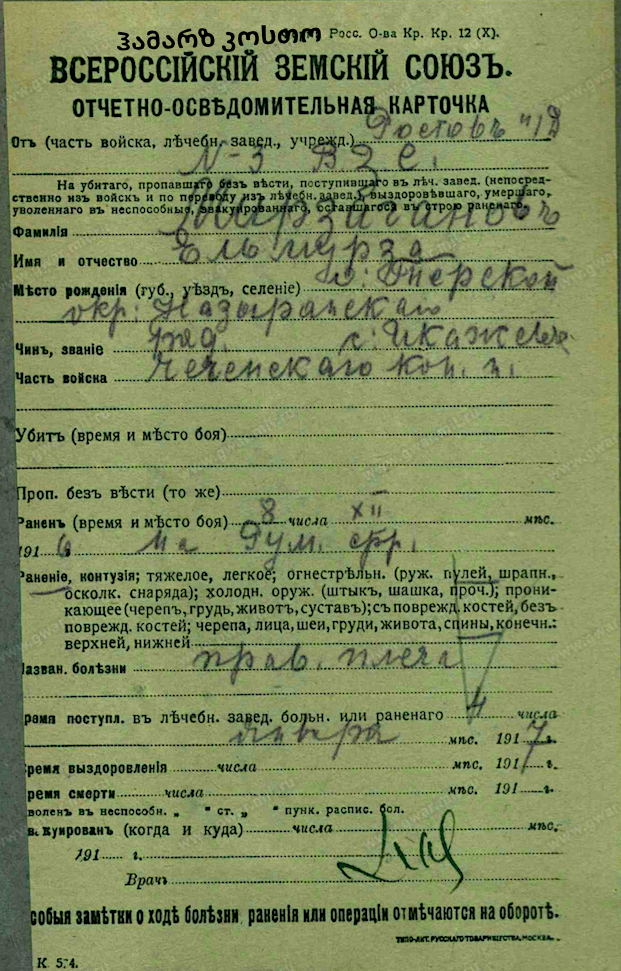 ჰამარზ კოსთო
Росс. О-ва Кр. Кр. 12 (X).
ВСЕРОССІЙСКІЙ ЗЕМСКІЙ СОЮЗЪ.
ОТЧЕТНО-ОСВѢДОМИТЕЛЬНАЯ КАРТОЧКА
Отъ (часть войска, лѣчебн. завед., учрежд.) Ростовъ н/Д
N-3 ВЗС.
На убитаго, пропавшаго безъ вѣсти, поступившаго въ лѣч. завед. (непосред-
ственно изъ войскъ и по переводу изъ лѣчебн. завед.), выздоровѣвшаго, умершаго,
уволеннаго въ неспособные, эвакуированнаго, оставшагося въ строю раненаго.
Фамилія
Имя и отчество Ельмурза
Мѣсто рожденія (губ., уѣздъ, селеніе) о: Терской
окр: Назырапскаго
Чинъ, званіе ряд. с:
Часть войска Чеченскаго кон. п.
Убитъ (время и мѣсто боя)
Проп. безъ вѣсти (то же)
Раненъ (время и мѣсто боя) 8 числа XII мѣс.
191 6 На Рум. фр.
Раненіе, контузія; тяжелое, легкое; огнестрѣльн. (руж. пулей, шрапн.,
осколк. снаряда); холодн. оруж. (штыкъ, шашка, проч.); прони-
кающее (черепъ, грудь, животъ, суставъ); съ поврежд. костей, безъ
поврежд. костей; черепа, лица, шеи, груди, живота, спины, конечн.:
верхней, нижней прав. плеча
Назван. болѣзни
Время поступл. въ лѣчебн. завед. больн. или раненаго 4 числа
января мѣс. 1917 г.
Время выздоровленія числа мѣс. 191 г.
Время смерти числа мѣс. 191 г.
Уволенъ въ неспособн. „ " ст. „ " пунк. распис. бол.
Эвакуированъ (когда и куда) числа мѣс.
191 г.
Врачъ
Особыя замѣтки о ходѣ болѣзни, раненія или операціи отмѣчаются на оборотѣ.
ТИПО-ЛИТ. РУССКАГО ТОВАРИЩЕСТВА, МОСКВА.
К 574.